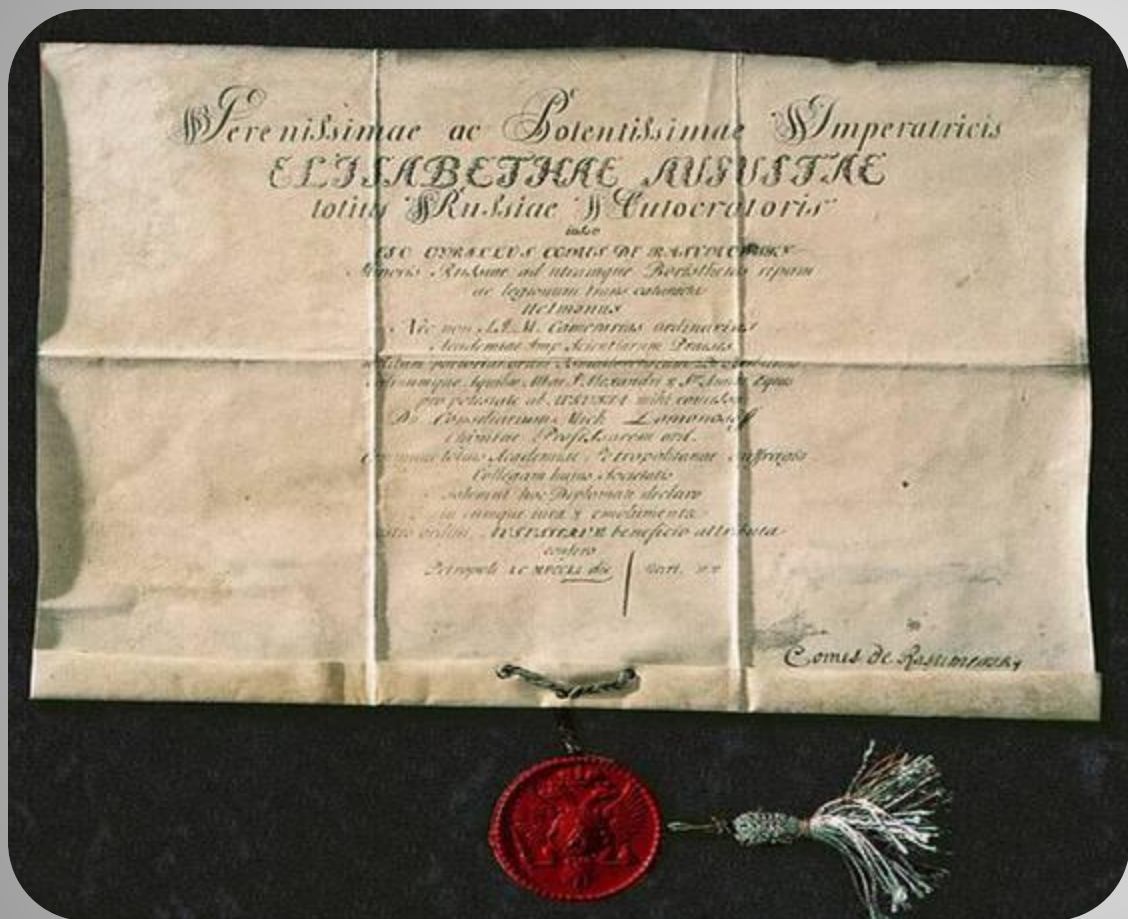 Serenissimae ac Potentissimae Imperatricis
ELISABETHAE AUGUSTAE
totius Russiae Autocratoris
iussu
EGO CYRILLUS COMES DE RASUMOWSKY
Minoris Russiae ad utramque Boristhenis ripam
ac legionum trans
Hetmanus
Nec non S. I. M. Camerarius ordinarius
Academiae Imp Scientiarum Praeses
Aquilae Albae S. Alexandri & S. Annae Eques
pro potestate ab AUGUSTA mihi concessa
Dn. Consiliarium Mich Lomonosoff
Chimiae Professorem ord.
totius Academiae Petropolitanae suffragio
Collegam huius Societatis
solemni hoc Diplomate declaro
in eumque iura & emolumenta
ordini AUGUSTAE beneficio attributa
confero
Petropoli die
Comes de Rasumowsky